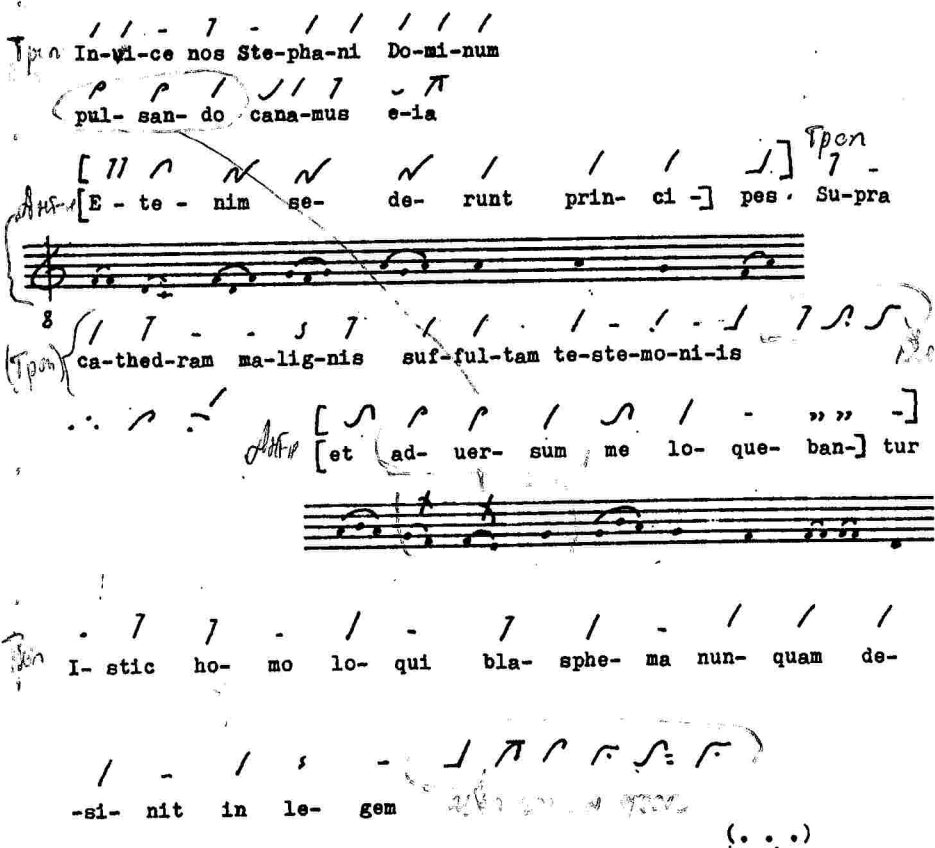 Троп In-vi-ce nos Ste-pha-ni Do-mi-num
pul- san- do cana-mus e-ia
Троп
Ант-н [E - te - nim se- de- runt prin- ci -] pes. Su-pra
8
(Троп) ca-thed-ram ma-lig-nis suf-ful-tam te-ste-mo-ni-is
Ант-н [et ad- uer- sum me lo- que- ban-] tur
Троп I- stic ho- mo lo- qui bla- sphe- ma nun- quam de-
-si- nit in le- gem
(. . .)